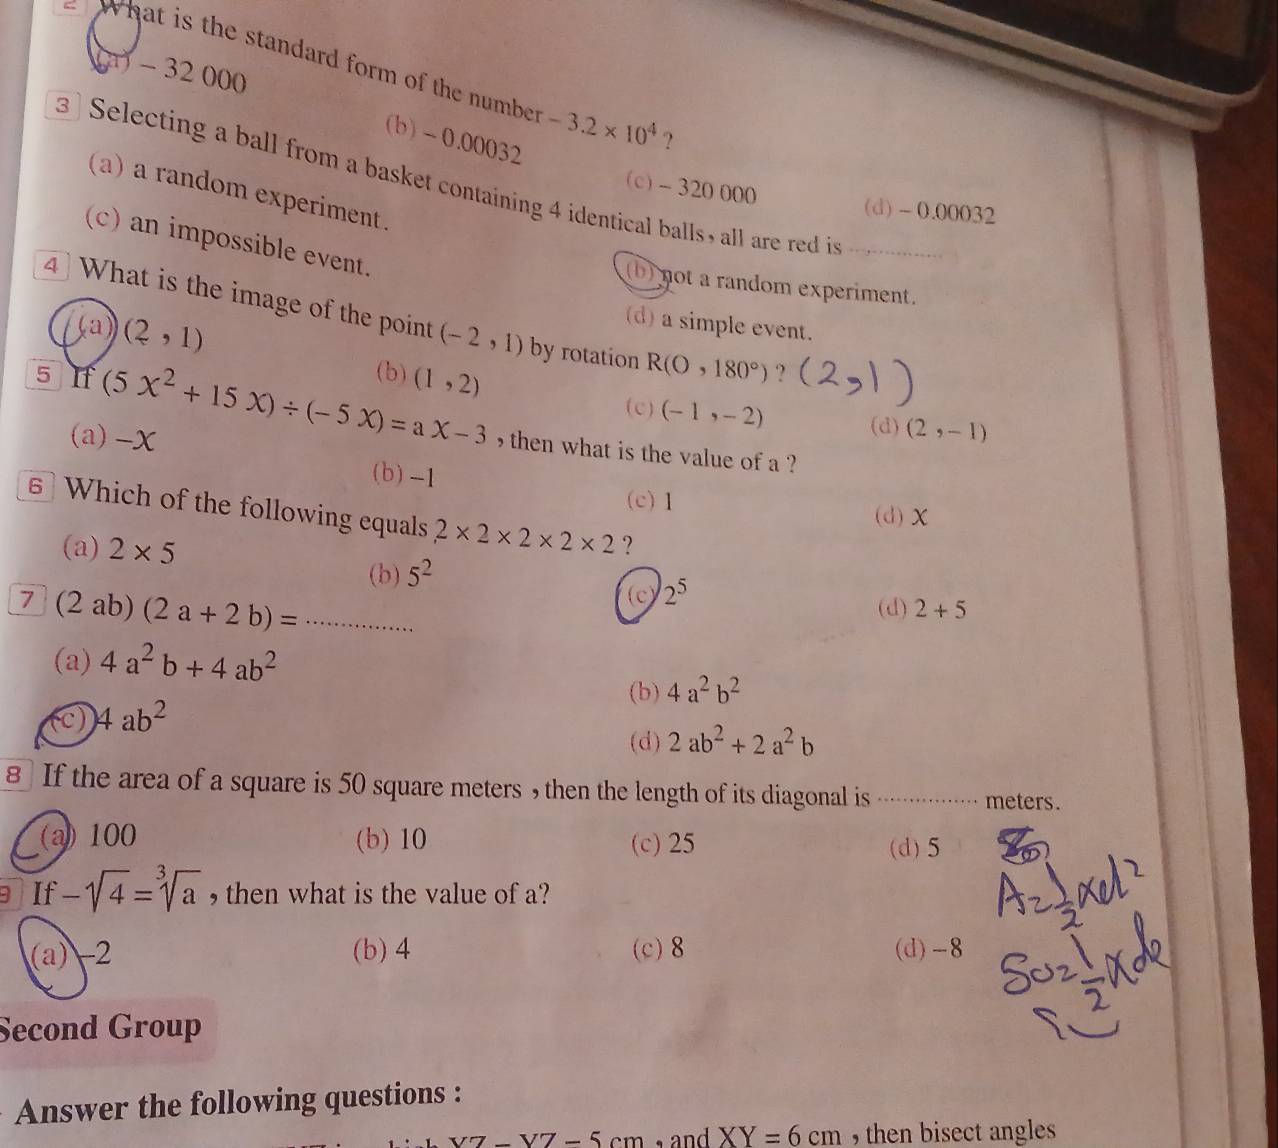 2 What is the standard form of the number – 3.2 × 10⁴ ?
(a) – 32 000 (b) – 0.00032 (c) – 320 000 (d) – 0.00032
3 Selecting a ball from a basket containing 4 identical balls , all are red is .............
(a) a random experiment. (b) not a random experiment.
(c) an impossible event. (d) a simple event.
4 What is the image of the point (– 2 , 1) by rotation R(O , 180°) ? (2,1)
(a) (2 , 1) (b) (1 , 2) (c) (– 1 , – 2) (d) (2 , – 1)
5 If (5 X² + 15 X) ÷ (– 5 X) = a X – 3 , then what is the value of a ?
(a) –X (b) –1 (c) 1 (d) X
6 Which of the following equals 2 × 2 × 2 × 2 × 2 ?
(a) 2 × 5 (b) 5² (c) 2⁵ (d) 2 + 5
7 (2 ab) (2 a + 2 b) = ................
(a) 4 a² b + 4 ab² (b) 4 a² b²
(c) 4 ab² (d) 2 ab² + 2 a² b
8 If the area of a square is 50 square meters , then the length of its diagonal is ................ meters.
(a) 100 (b) 10 (c) 25 (d) 5
A=½×d²
9 If –√4 = ³√a , then what is the value of a?
(a) –2 (b) 4 (c) 8 (d) –8
50=½×d²
Second Group
Answer the following questions :
– YZ = 5 cm , and XY = 6 cm , then bisect angles